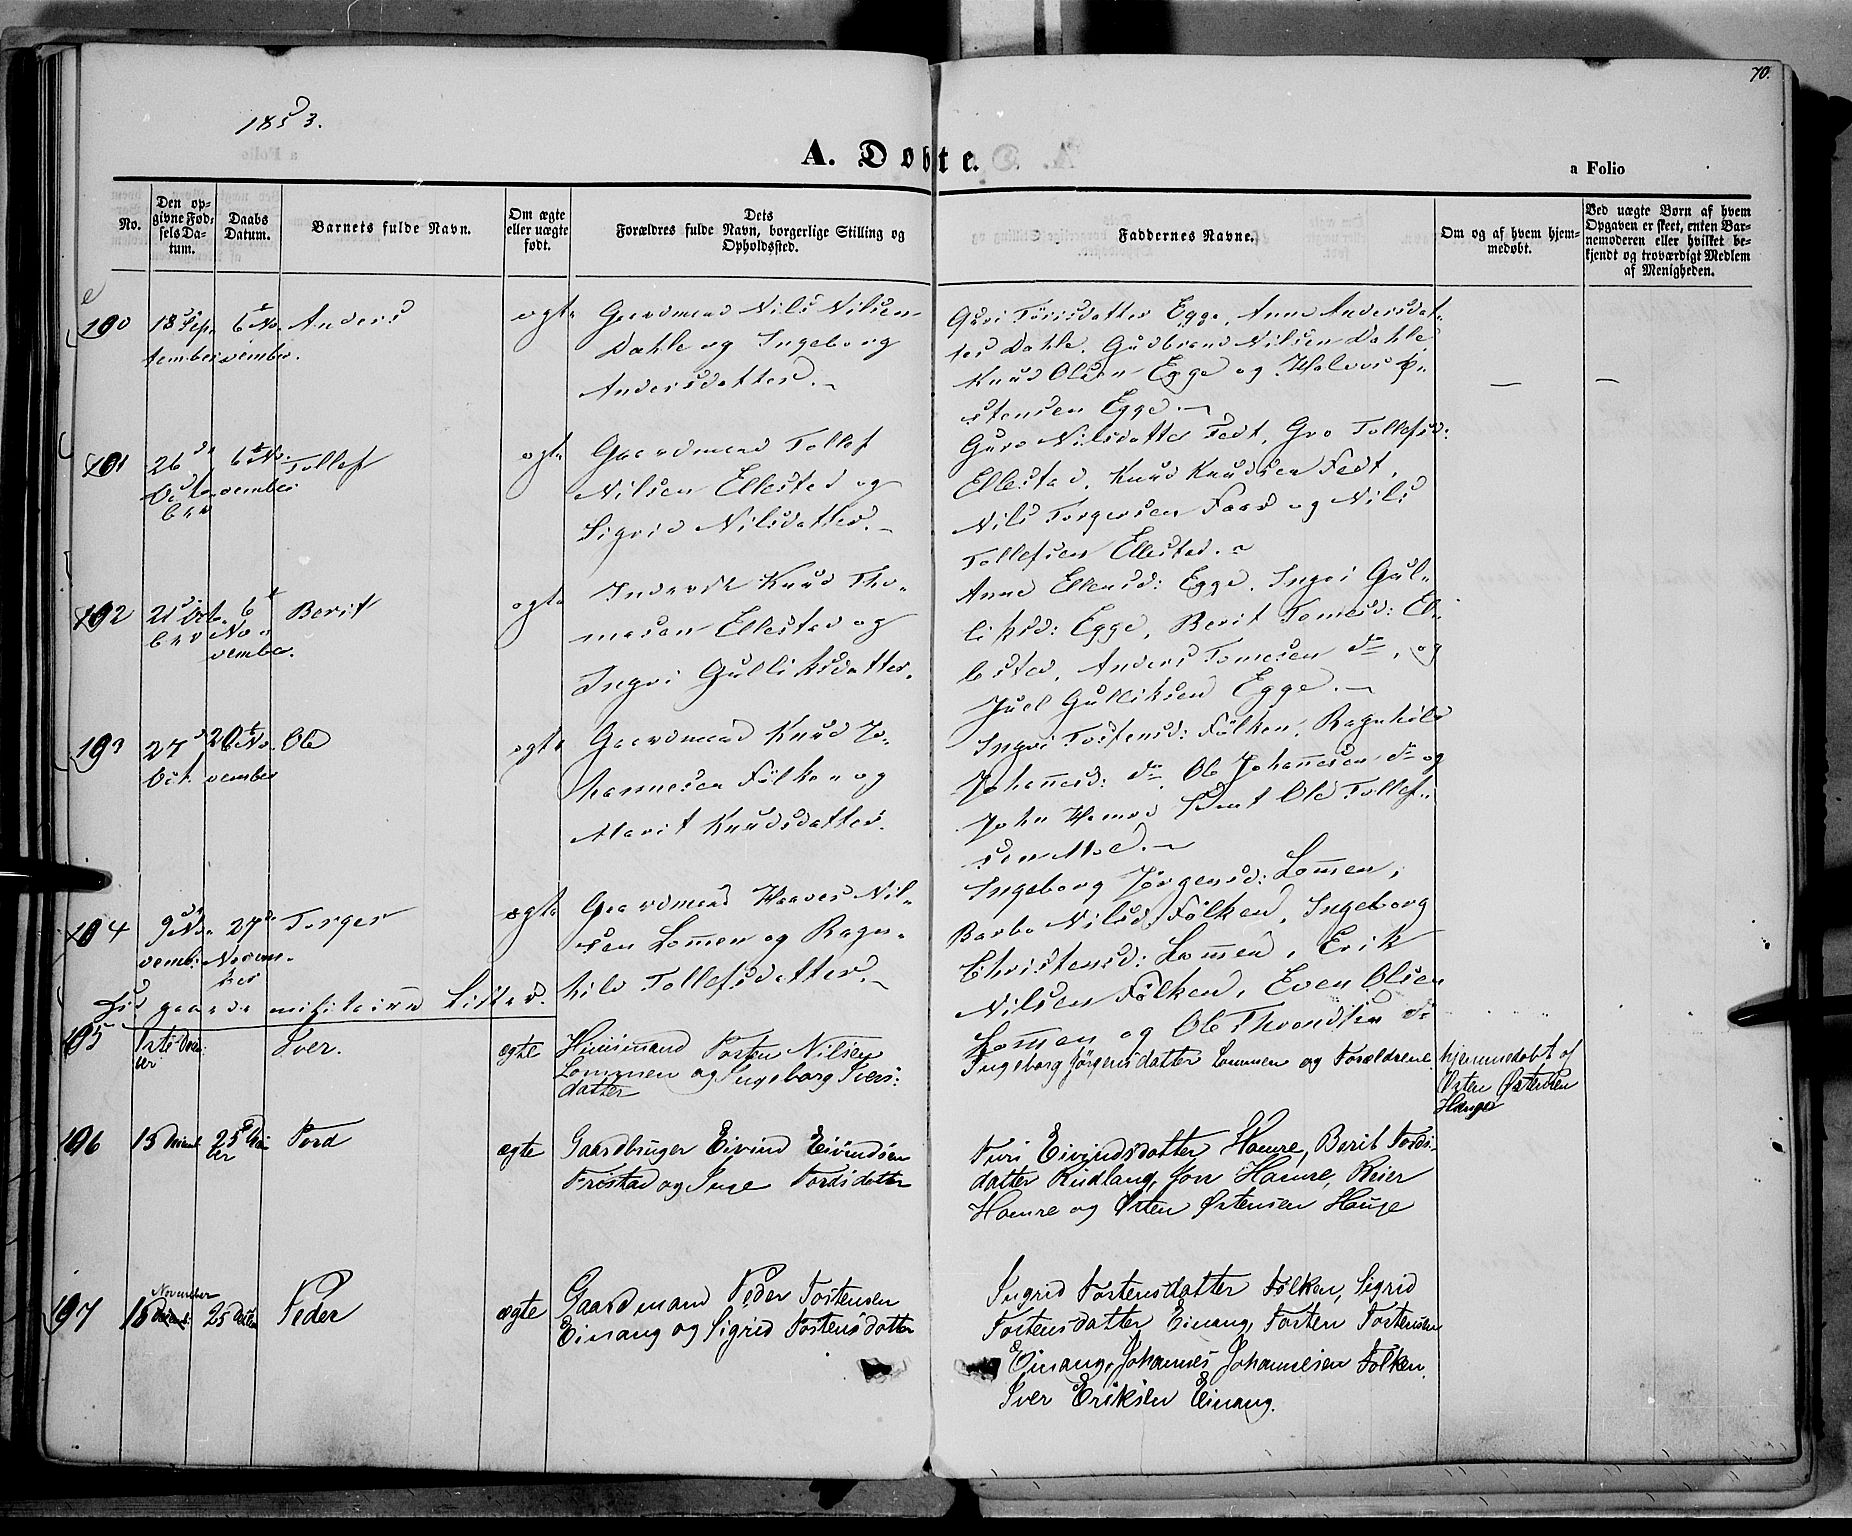 70.
1853.
A. Døbte.
a Folio
No.
Den op-
givne Fød-
sels Da-
tum.
Daabs
Datum.
Barnets fulde Navn.
Om ægte
eller uægte
født.
Dets
Forældres fulde Navn, borgerlige Stilling og
Opholdssted.
Faddernes Navne.
Om og af hvem hjem-
medøbt.
Ved uægte Børn af hvem
Opgaven er skeet, enten Bar-
nemoderen eller hvilket be-
kjendt og troværdigt Medlem
af Menigheden.
190 18 Sep-
tember 6 No-
vember. Anders ægte
Gaardmand Nils Nilsen
Dahle og Ingeborg
Andersdatter.
Guri Torisdatter Egge, Anne Andersdat-
ter Dahle, Gudbrand Nilsen Dahle
Knud Olsen Egge og Halvor
stensen Egge.
191 26
Octo-
ber 6 No-
vember Tollef ægte
Gaardmand Tollef
Nilsen Ellestad og
Sigrid Nilsdatter.
Guro Nilsdatter Fedt, Gro Tollefsd:
Ellestad, Knud Knudsen Fedt,
Nils Torgersen og Nils
Tollefsen Ellestad.
192 21 Octo-
ber 6
No-
vember. Berit ægte
Inderst Knud Tho-
masen Ellestad og
Ingri Gulliksdatter.
Anne Ellensd: Egge, Ingri Gul-
liksd: Egge, Berit Tomesd: El-
lestad, Anders Tomesen do, og
Juel Gulliksen Egge.
193 27
Oct. 20 No-
vember Ole ægte
Gaardmand Knud Jo-
hannesen Følken og
Marit Knudsdatter.
Ingri Tostensd: Følken, Ragnhild
Johannesd: do, Ole Johannesen do og
John samt Ole Tollef-
sen Moe.
194 9 No-
vemb: 27
Novem-
ber Torger ægte
Gaardmand Haavar Nil-
sen Lommen og Ragn-
hild Tollefsdatter.
Ingeborg Jørgensd: Lommen,
Barbo Nilsd Følken, Ingeborg
Christensd: Lommen, Erik
Nilsen Følken, Even Olsen
Lommen og Ole Throndsen do
militaire Lister.
195 Iver. ægte
Huusmand Tosten Nilsen
Lommen og Ingeborg Ivers-
datter
Ingeborg Jørgensdatter Lommen og Forældrene
hjemmedøbt af
Østen Østensen
Hauge
196 15 25 Tord ægte
Gaardbruger Eivind Eivindsen
Frøstad og Inge Tordsdatter
Turi Eivindsdatter Hamre, Berit Tords-
datter Rudlang, Jon Hamre, Reier
Hamre og Østen Østensen Hauge
197 November
16 25 Peder ægte
Gaardmand Peder Tostensen
Einang og Sigrid Tostensdatter
Ingrid Tostensdatter Følken, Sigrid
Tostensdatter Einang, Tosten Tostensen
Einang, Johannes Johannesen Følken,
Iver Eriksen Einang.